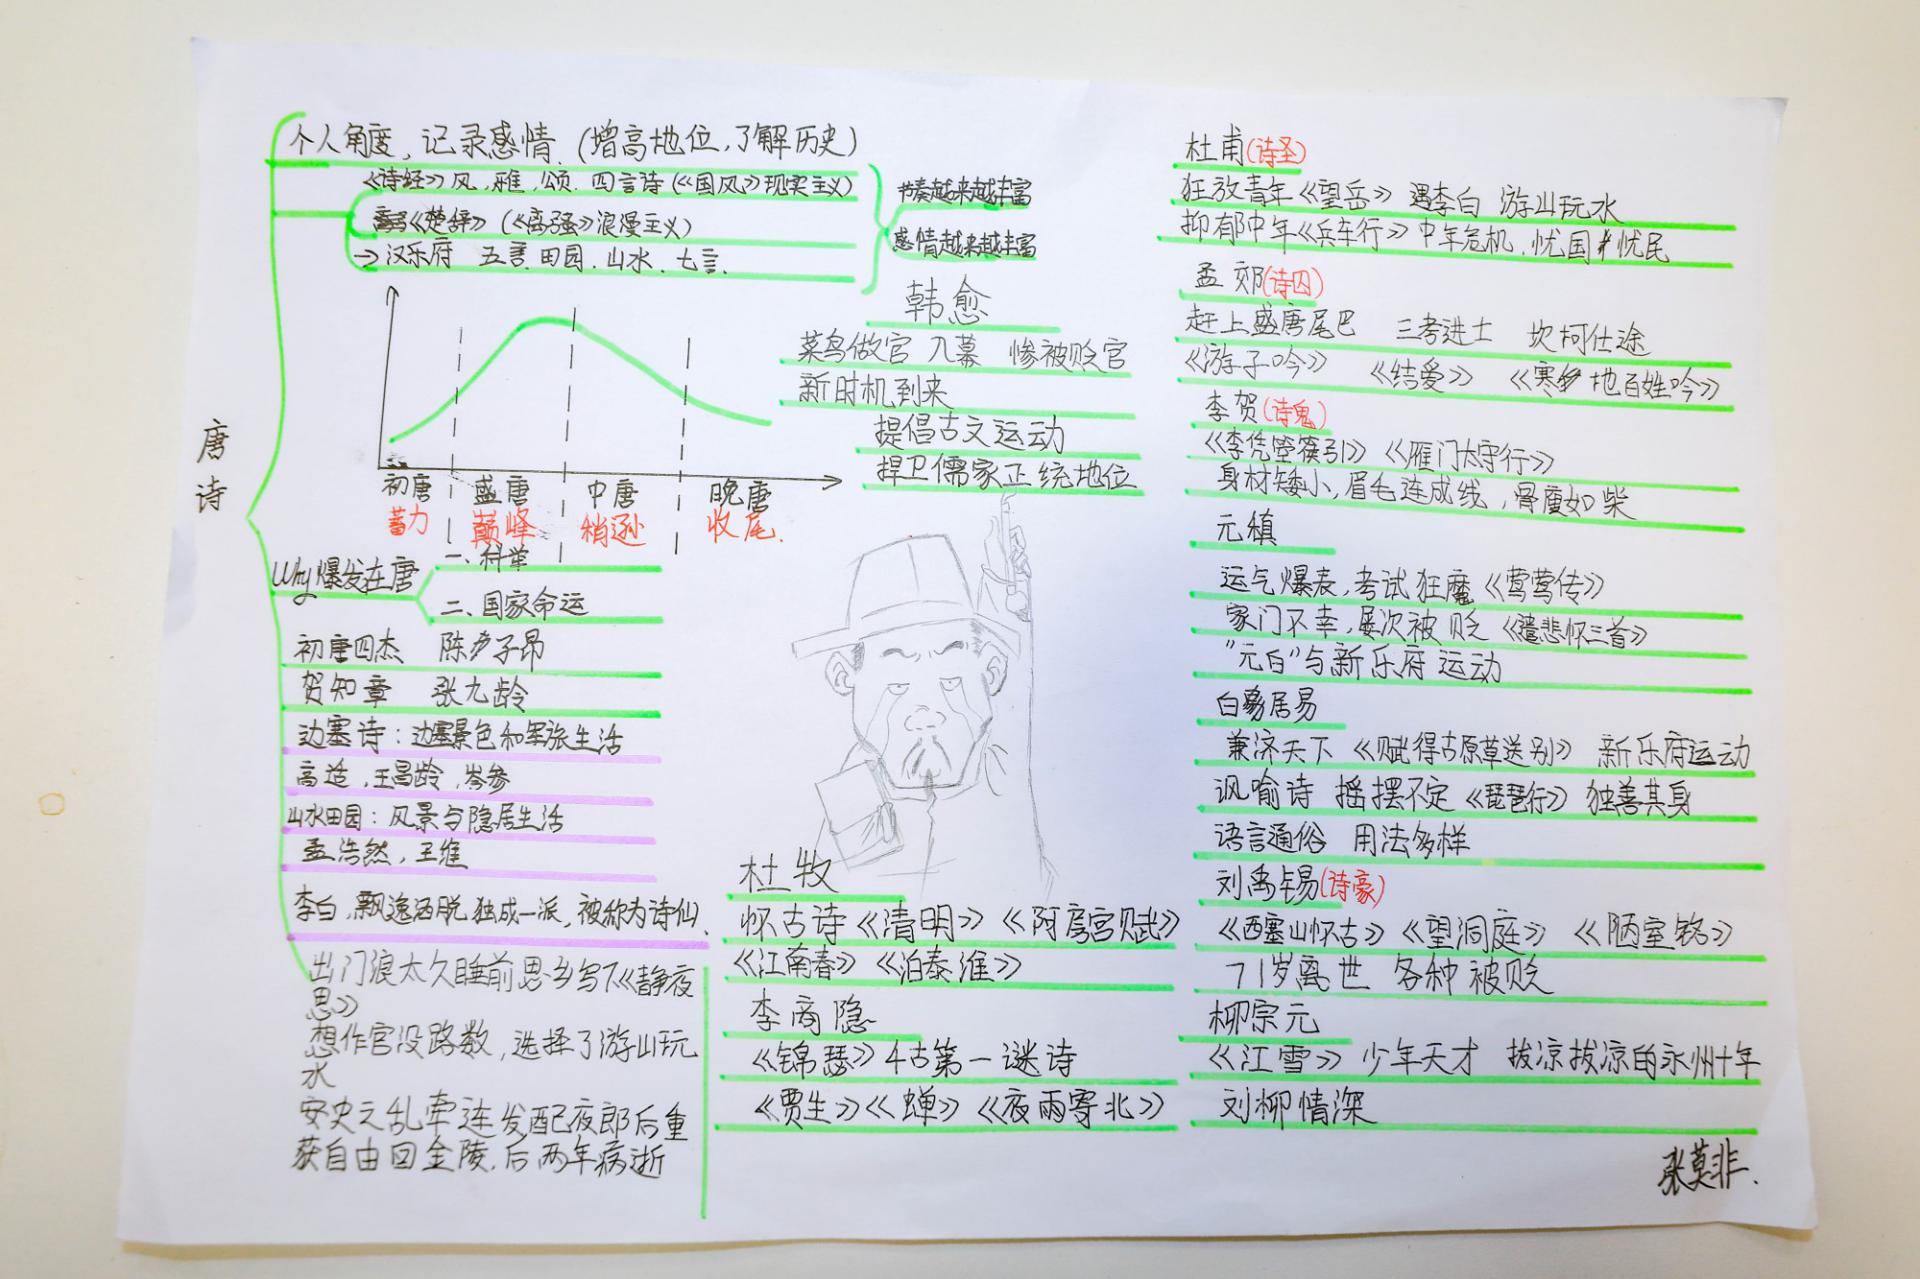 唐诗
个人角度，记录感情.（增高地位，了解历史）
《诗经》风，雅，颂. 四言诗（《国风》现实主义）
《楚辞》（《离骚》浪漫主义）
→汉乐府 五言.田园.山水.七言.
节奏越来越丰富
感情越来越丰富
初唐 盛唐 中唐 晚唐
蓄力 巅峰 稍逊 收尾.
Why爆发在唐
一.科举
二、国家命运
初唐四杰 陈子昂
贺知章 张九龄
边塞诗：边塞景色和军旅生活
高适，王昌龄，岑参
山水田园：风景与隐居生活
孟浩然，王维
李白，飘逸洒脱 独成一派，被称为诗仙.
出门浪太久睡前思乡写下《静夜
思》
想作官没路数，选择了游山玩
水
安史之乱牵连发配夜郎后重
获自由回金陵，后两年病逝
韩愈
菜鸟做官 入幕 惨被贬官
新时机到来
提倡古文运动
捍卫儒家正统地位
杜牧
怀古诗《清明》《阿房宫赋》
《江南春》《泊秦淮》
李商隐
《锦瑟》千古第一谜诗
《贾生》《蝉》《夜雨寄北》
杜甫(诗圣)
狂放青年《望岳》遇李白 游山玩水
抑郁中年《兵车行》中年危机.忧国忧民
孟郊(诗囚)
赶上盛唐尾巴 三考进士 坎坷仕途
《游子吟》 《结爱》 《寒地百姓吟》
李贺(诗鬼)
《李凭箜篌引》《雁门太守行》
身材矮小，眉毛连成线，骨瘦如柴
元稹
运气爆表，考试狂魔《莺莺传》
家门不幸，屡次被贬《遣悲怀三首》
“元白”与新乐府运动
白居易
兼济天下《赋得古原草送别》 新乐府运动
讽喻诗 摇摆不定《琵琶行》 独善其身
语言通俗 用法多样
刘禹锡(诗豪)
《西塞山怀古》《望洞庭》 《陋室铭》
71岁离世 各种被贬
柳宗元
《江雪》少年天才 拔凉拔凉的永州十年
刘柳情深
张莫非.